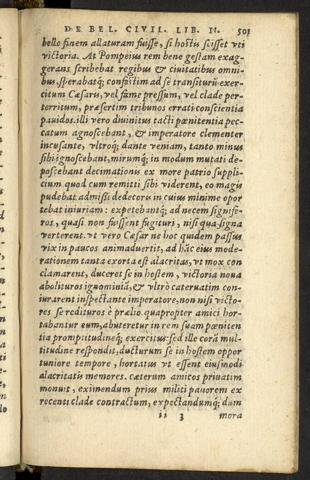 DE BEL. CIVIL. LIB. II. 501
bello finem allaturam fuisse, si hostis scisset vti
victoria. At Pompeius rem bene gestam exag
gerans scribebat regibus & ciuitatibus omni-
bus. sperabatq; confestim ad se transiturũ exer-
citum Cæsaris, vel fame pressum, vel clade per-
territum, præsertim tribunos errati conscientia
pauidos. illi vero diuinitus tacti pœnitentia pec-
catum agnoscebant, & imperatore clementer
incusante, vltroq; dante veniam, tanto minus
sibi ignoscebant, mirumq; in modum mutati de-
poscebant decimationis ex more patrio suppli-
cium. quod cum remitti sibi viderent, eo magis
pudebat admissi dedecoris in cuius minime opor
tebat iniuriam: expetebantq; ad necem signife-
ros, quasi non fuissent fugituri, nisi qua signa
verterent. vt vero Cæsar ne hoc quidem passus
vix in paucos animaduertit, ad hãc eius mode-
rationem tanta exorta est alacritas, vt mox con
clamarent, duceret se in hostem, victoria noua
abolituros ignominiã, & vltrò cateruatim con-
iurarent inspectante imperatore, non nisi victo-
res se redituros è prælio. quapropter amici hor-
tabantur eum, abuteretur in rem suam pœniten
tia prompitudineq; exercitus: sed ille corã mul-
titudine respondit, ducturum se in hostem oppor
tuniore tempore, hortatus vt essent eiusmodi
alacritatis memores. cæterum amicos priuatim
monuit, eximendum prius militi pauorem ex
recenti clade contractum, expectandumq; dum
ii 3 mora